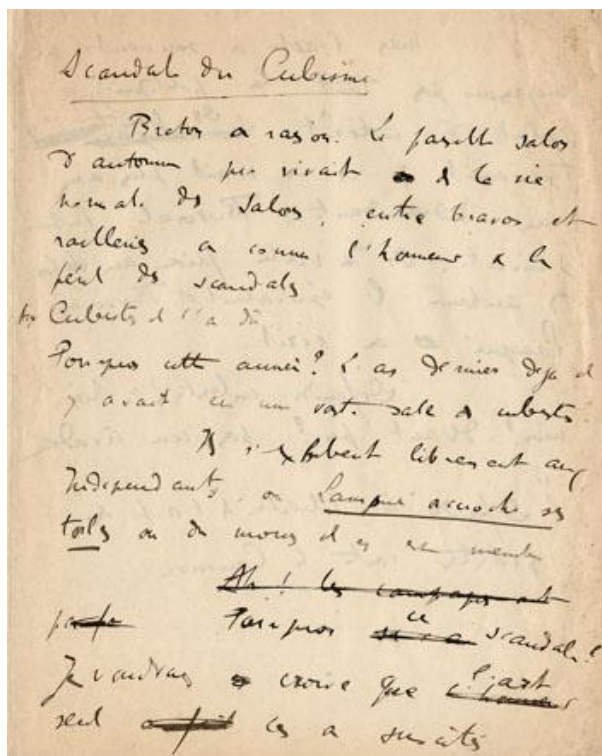 Scandale du Cubisme
Breton a raison. Le salon
d'automne qui vivait de la vie
normale des salons, entre bravos et
railleries a connu l'honneur &
péril des scandales
Cubistes
Pourquoi cette année? L'an dernier déjà il
y avait eu une vaste salle de cubistes
Ils s'exhibent librement aux
Indépendants, on Lampué accroche ses
toiles ou du moins il en membre
Ah! les campagnes
Pourquoi ce scandale?
Je voudrais croire que l'art
seul les a suscités